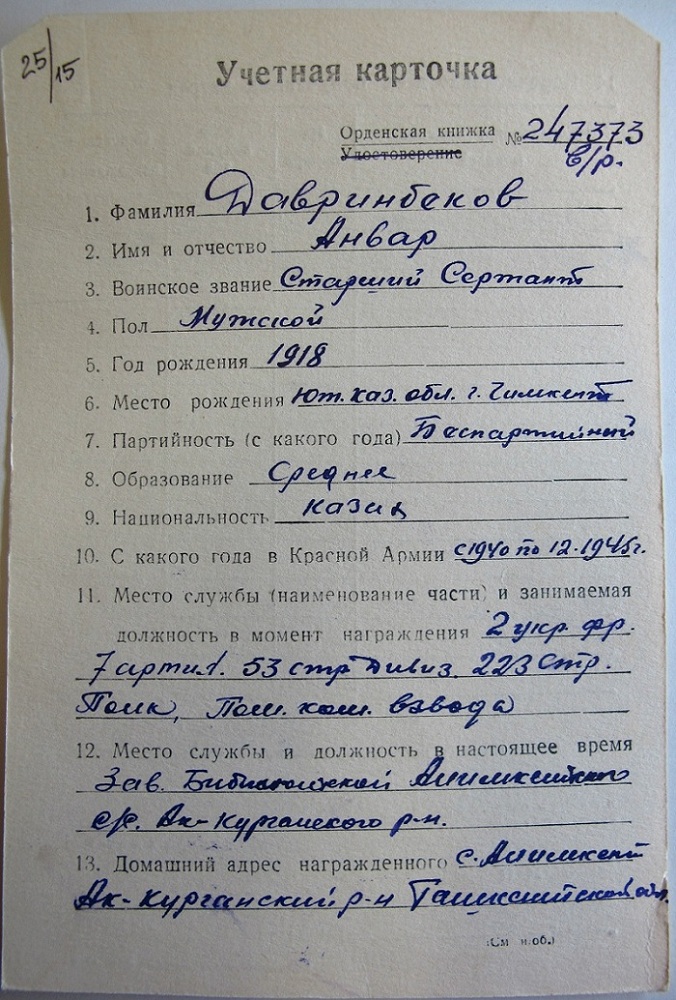 25/15
Учетная карточка
Орденская книжка № 247373
Удостоверение в/р.
1. Фамилия Давринбеков
2. Имя и отчество Анвар
3. Воинское звание Старший Сержант
4. Пол Мужской
5. Год рождения 1918
6. Место рождения Юж. Каз. обл. г. Чимкент
7. Партийность (с какого года) Беспартийный
8. Образование Среднее
9. Национальность казак
10. С какого года в Красной Армии с 1940 по 12-1945г.
11. Место службы (наименование части) и занимаемая
должность в момент награждения 2 укр. фр.
7 арт 53 стр Дивиз. 223 Стр.
Полк, Пом. ком. взвода
12. Место службы и должность в настоящее время
Зав. Библиотекой
с/с. Ак-Курганского р-н.
13. Домашний адрес награжденного с.
Ак-Курганский р-н Ташкентской обл.
(См н об.)